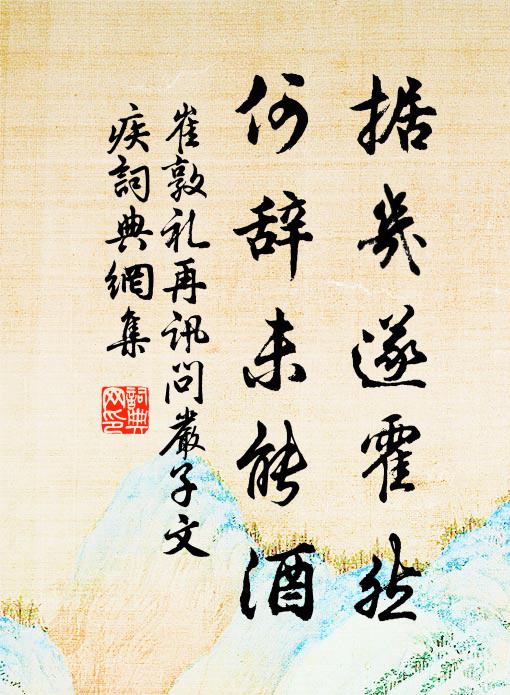 据几遂霍然
何辞未能酒
崔敦礼再讯问严子文
疾词典網集
詞典
网印